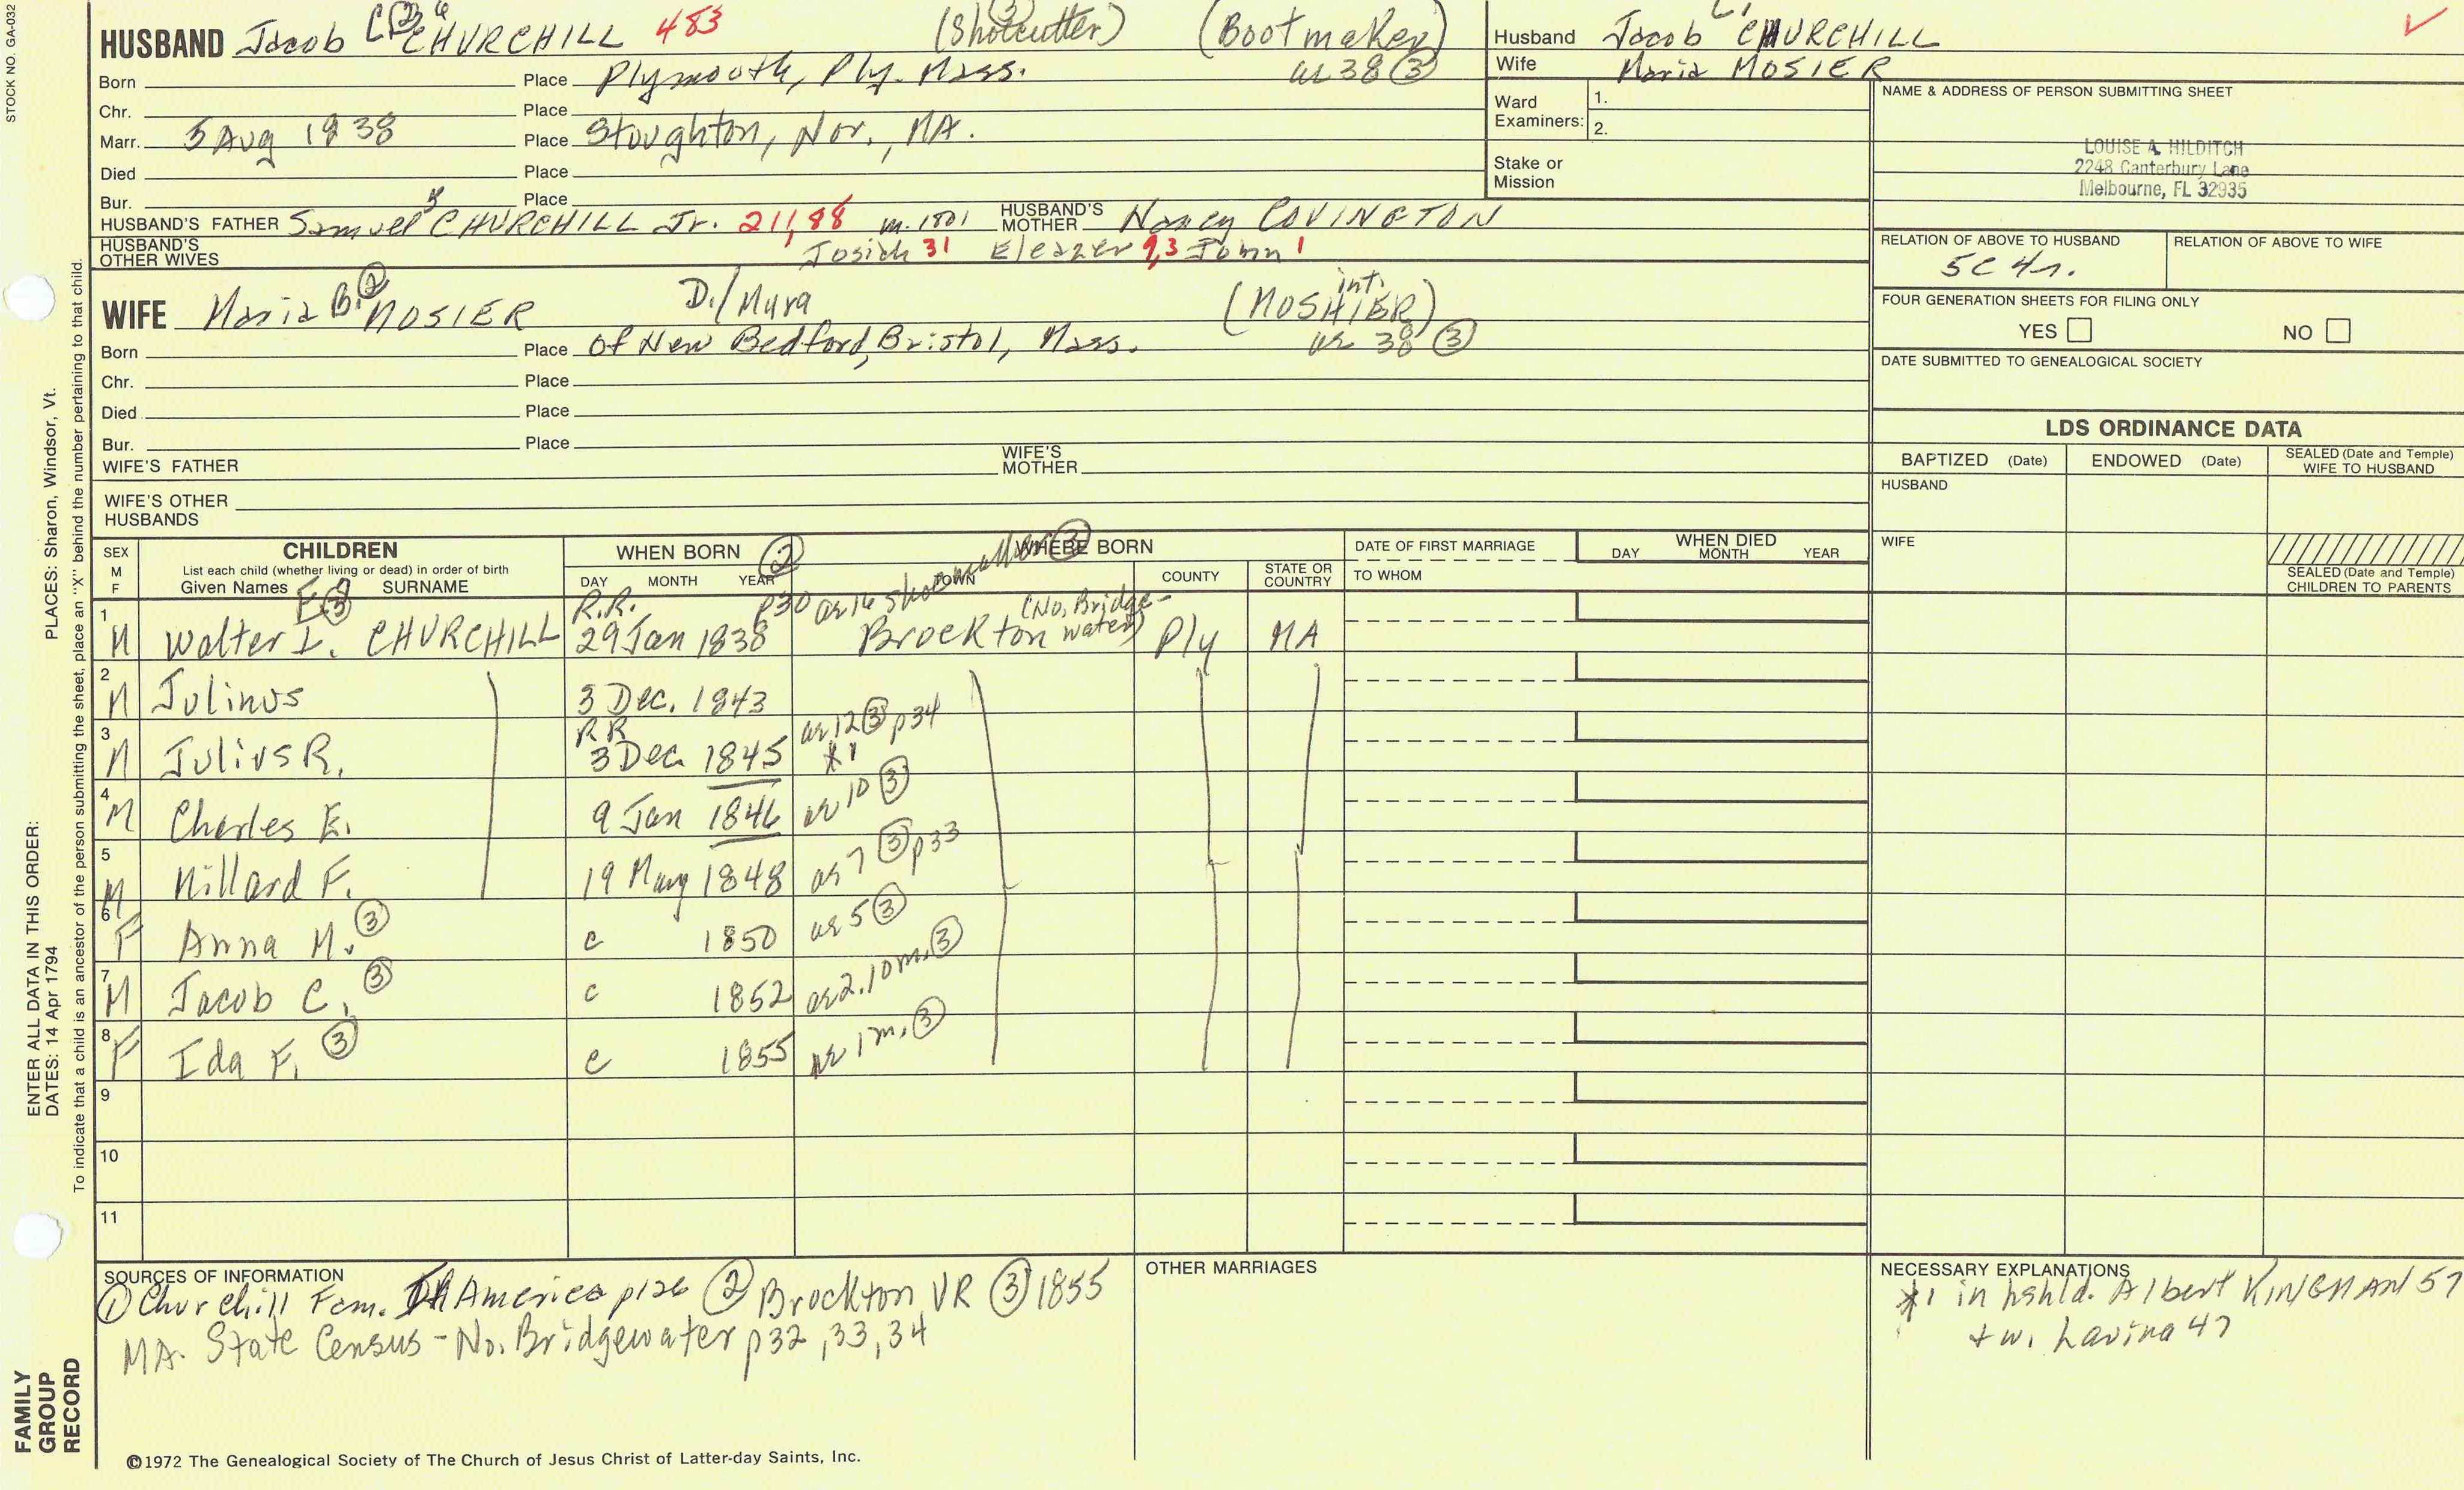 STOCK NO. GA-032
HUSBAND Jacob C. CHURCHILL 483 (Shoecutter) (Bootmaker)
Born Place Plymouth, Ply. Mass. ae 38 ③
Chr. Place
Marr. 5 Aug 1838 Place Stoughton, Nor., MA.
Died Place
Bur. Place
HUSBAND'S FATHER Samuel CHURCHILL Jr. 211,88 m. 1801 HUSBAND'S MOTHER Nancy COVINGTON
HUSBAND'S OTHER WIVES Josiah 31 Eleazer 9,3 John 1
Husband Jacob C. CHURCHILL
Wife Maria MOSIER
Ward Examiners: 1.
2.
Stake or Mission
NAME & ADDRESS OF PERSON SUBMITTING SHEET
LOUISE A. HILDITCH
2248 Canterbury Lane
Melbourne, FL 32935
RELATION OF ABOVE TO HUSBAND RELATION OF ABOVE TO WIFE
5C 4r.
FOUR GENERATION SHEETS FOR FILING ONLY
YES NO
DATE SUBMITTED TO GENEALOGICAL SOCIETY
WIFE Maria B. ② MOSIER D./Mura int. (MOSHIER)
Born Place Of New Bedford, Bristol, Mass. ae 38 ③
Chr. Place
Died Place
Bur. Place
WIFE'S FATHER WIFE'S MOTHER
WIFE'S OTHER HUSBANDS
LDS ORDINANCE DATA
BAPTIZED (Date) ENDOWED (Date) SEALED (Date and Temple) WIFE TO HUSBAND
HUSBAND
WIFE
SEALED (Date and Temple) CHILDREN TO PARENTS
SEX M F CHILDREN
List each child (whether living or dead) in order of birth
Given Names SURNAME
WHEN BORN ② DAY MONTH YEAR
WHERE BORN TOWN COUNTY STATE OR COUNTRY
DATE OF FIRST MARRIAGE TO WHOM
WHEN DIED DAY MONTH YEAR
E ③ R.R. p30 ae 16 shoemaker ③ (No. Bridge-
1 M Walter L. CHURCHILL 29 Jan 1838 Brockton water) Ply MA
2 M Julinus 3 Dec. 1843
3 M Julius R. RR 3 Dec 1845 ae 12 ③ p34 *1
4 M Charles E. 9 Jan 1846 ae 10 ③
5 M Millard F. 19 May 1848 ae 7 ③ p33
6 F Anna M. ③ c 1850 ae 5 ③
7 M Jacob C. ③ c 1852 ae 2, 10 m. ③
8 F Ida F. ③ c 1855 ae 1 m. ③
9
10
11
SOURCES OF INFORMATION
① Churchill Fam. In America p126 ② Brockton VR ③ 1855
MA. State Census - No. Bridgewater p32, 33, 34
OTHER MARRIAGES
NECESSARY EXPLANATIONS
*1 in hshld. Albert KINGMAN 57
+ w. Lavina 47
©1972 The Genealogical Society of The Church of Jesus Christ of Latter-day Saints, Inc.
FAMILY GROUP RECORD
ENTER ALL DATA IN THIS ORDER:
DATES: 14 Apr 1794
PLACES: Sharon, Windsor, Vt.
To indicate that a child is an ancestor of the person submitting the sheet, place an "X" behind the number pertaining to that child.